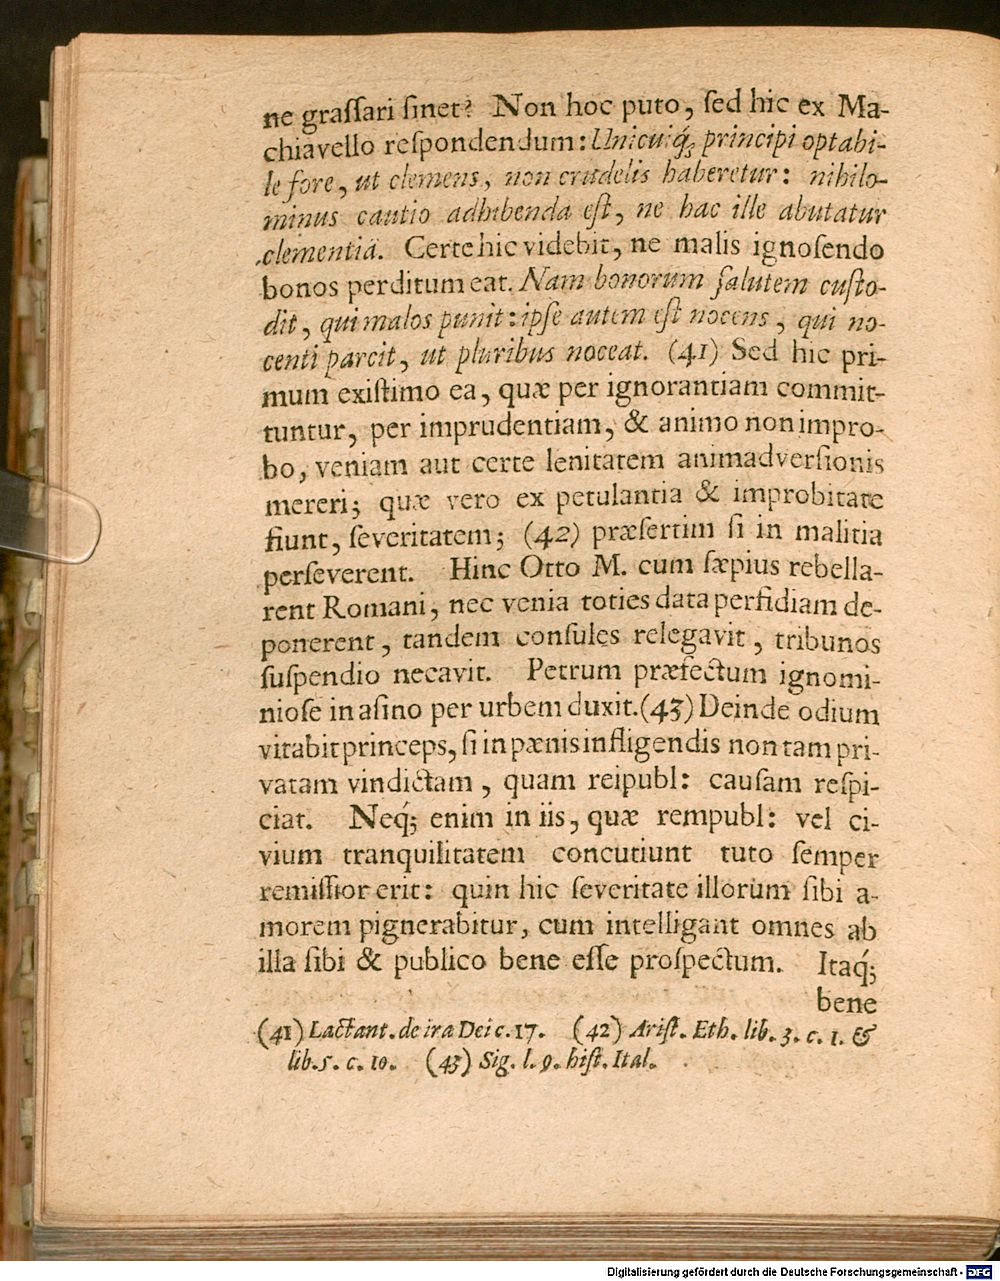 ne graſſari ſinet? Non hoc puto, ſed hic ex Ma-
chiavello reſpondendum: Unicuiq́; principi optabi-
le fore, ut clemens, non crudelis haberetur: nihilo-
minus cautio adhibenda eſt, ne hac ille abutatur
clementiâ. Certe hic videbit, ne malis ignoſendo
bonos perditum eat. Nam bonorum ſalutem cuſto-
dit, qui malos punit: ipſe autem eſt nocens, qui no-
centi parcit, ut pluribus noceat. (41) Sed hic pri-
mum exiſtimo ea, quæ per ignorantiam commit-
tuntur, per imprudentiam, & animo non impro-
bo, veniam aut certe lenitatem animadverſionis
mereri; quæ vero ex petulantia & improbitate
fiunt, ſeveritatem; (42) præſertim ſi in malitia
perſeverent. Hinc Otto M. cum ſæpius rebella-
rent Romani, nec venia toties data perfidiam de-
ponerent, tandem conſules relegavit, tribunos
ſuſpendio necavit. Petrum præfectum ignomi-
nioſe in aſino per urbem duxit. (43) Deinde odium
vitabit princeps, ſi in pænis infligendis non tam pri-
vatam vindictam, quam reipubl: cauſam reſpi-
ciat. Neq́; enim in iis, quæ rempubl: vel ci-
vium tranquilitatem concutiunt tuto ſemper
remiſſior erit: quin hic ſeveritate illorum ſibi a-
morem pignerabitur, cum intelligant omnes ab
illa ſibi & publico bene eſſe proſpectum. Itaq́;
bene
(41) Lactant. de ira Dei c. 17. (42) Ariſt. Eth. lib. 3. c. 1. &
lib. 5. c. 10. (43) Sig. l. 9. hiſt. Ital.
Digitalisierung gefördert durch die Deutsche Forschungsgemeinschaft - DFG